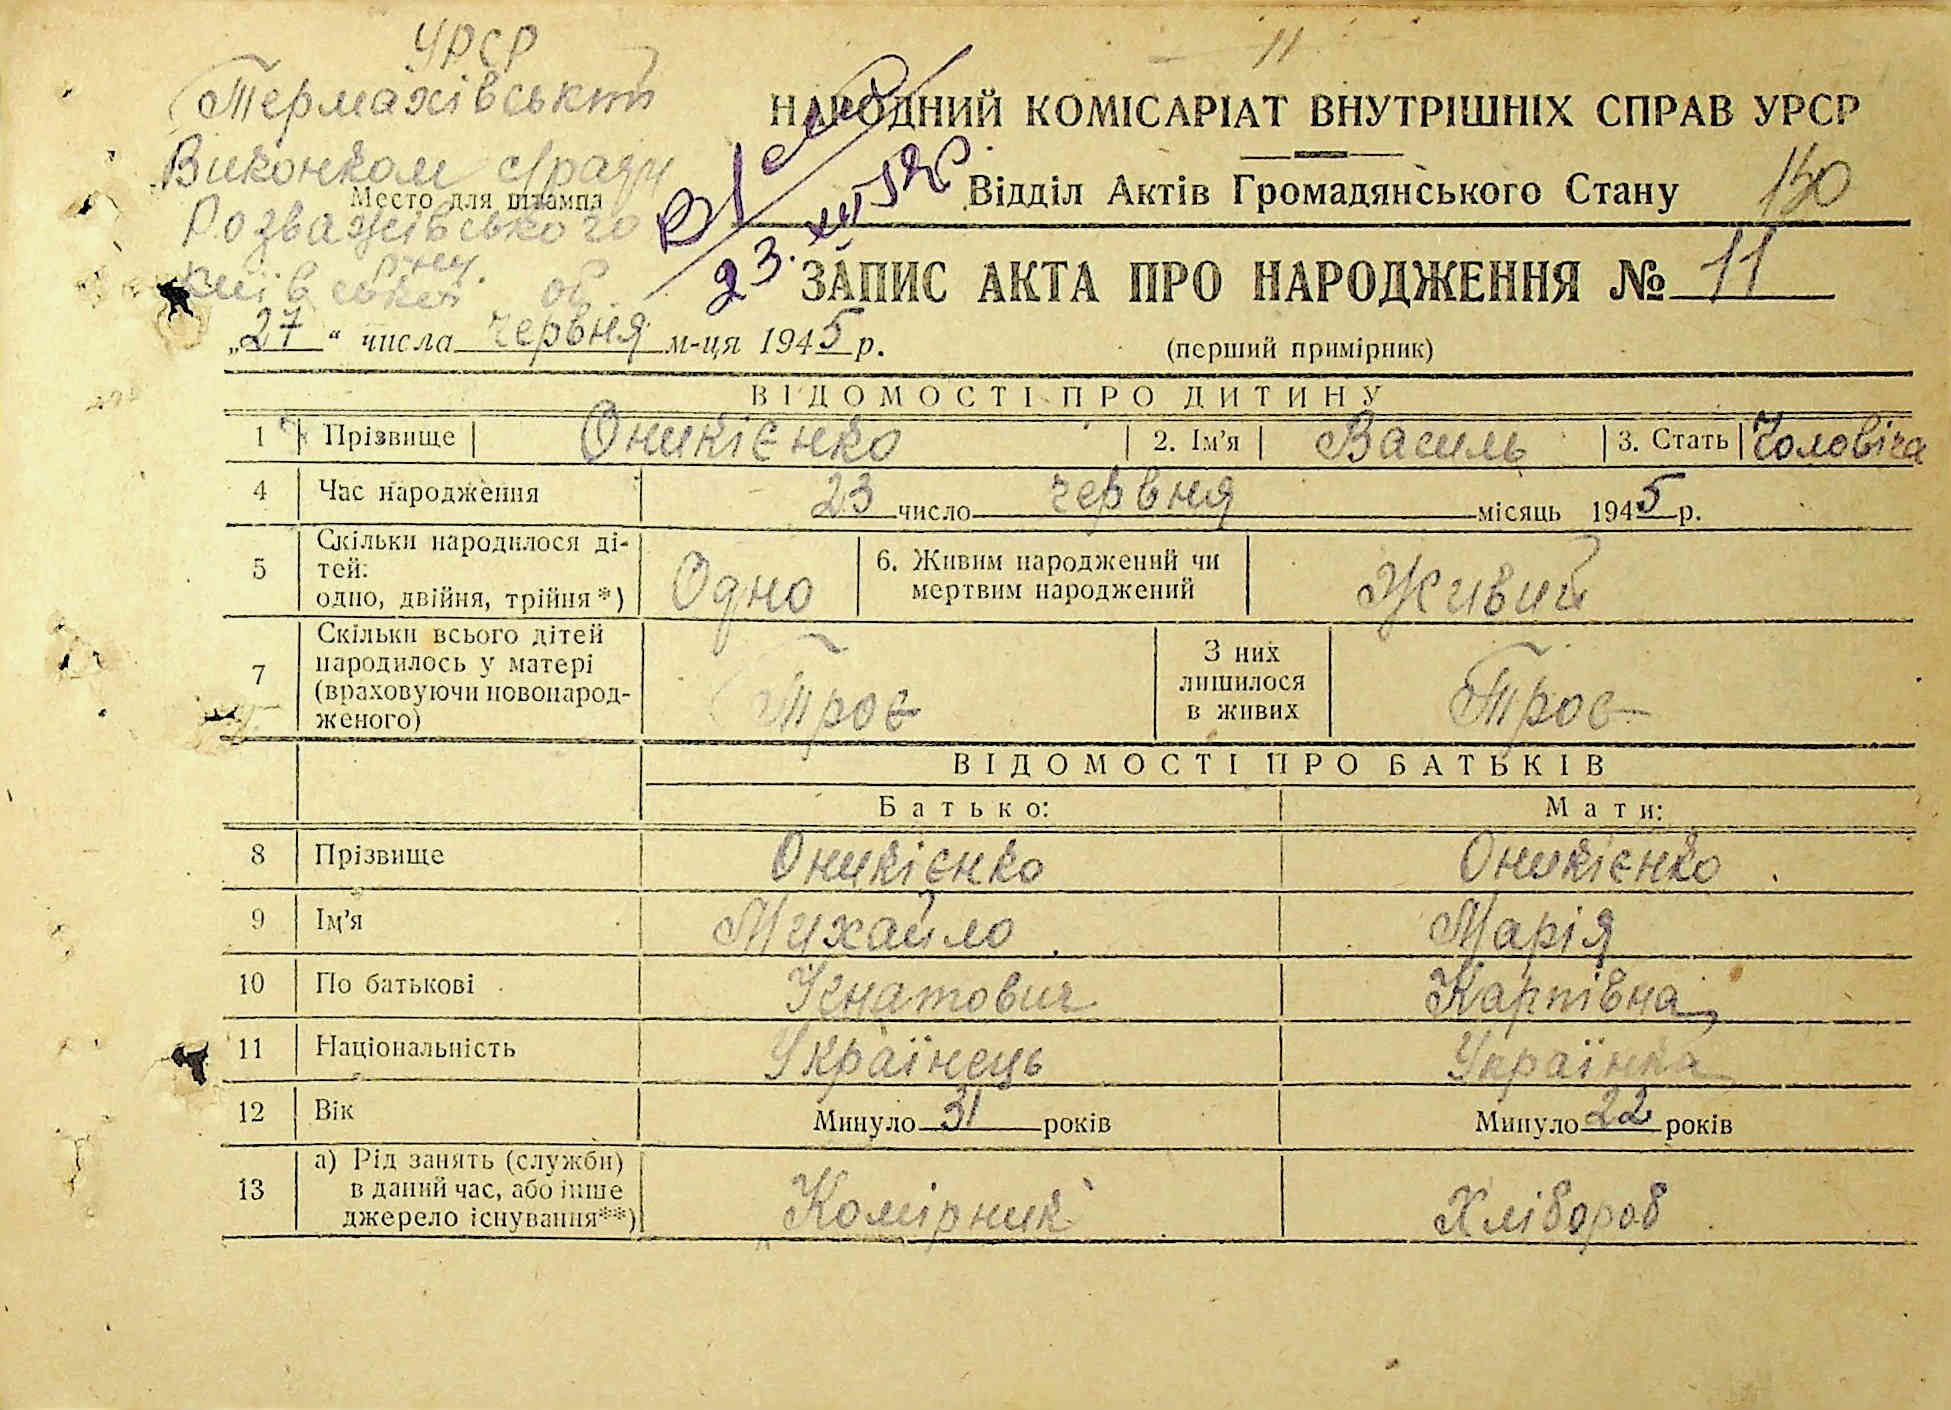 УРСР
Термахівський
Виконком с/ради
Место для штампа
Розважівського
р-ну
Київської об.
11
НАРОДНИЙ КОМІСАРІАТ ВНУТРІШНІХ СПРАВ УРСР
Відділ Актів Громадянського Стану 130
23.
ЗАПИС АКТА ПРО НАРОДЖЕННЯ № 11
„27“ числа червня м-ця 1945 р. (перший примірник)
ВІДОМОСТІ ПРО ДИТИНУ
1 Прізвище Оникієнко 2. Ім'я Василь 3. Стать Чоловіча
4 Час народження 23 число червня місяць 1945 р.
5 Скільки народилося дітей: одно, двійня, трійня*) Одно 6. Живим народжений чи мертвим народжений Живий
7 Скільки всього дітей народилось у матері (враховуючи новонародженого) Троє З них лишилося в живих Троє
ВІДОМОСТІ ПРО БАТЬКІВ
Батько: Мати:
8 Прізвище Оникієнко Оникієнко
9 Ім'я Михайло Марія
10 По батькові Ігнатович Карпівна
11 Національність Українець Українка
12 Вік Минуло 31 років Минуло 22 років
13 а) Рід занять (служби) в даний час, або інше джерело існування**) Комірник Хлібороб